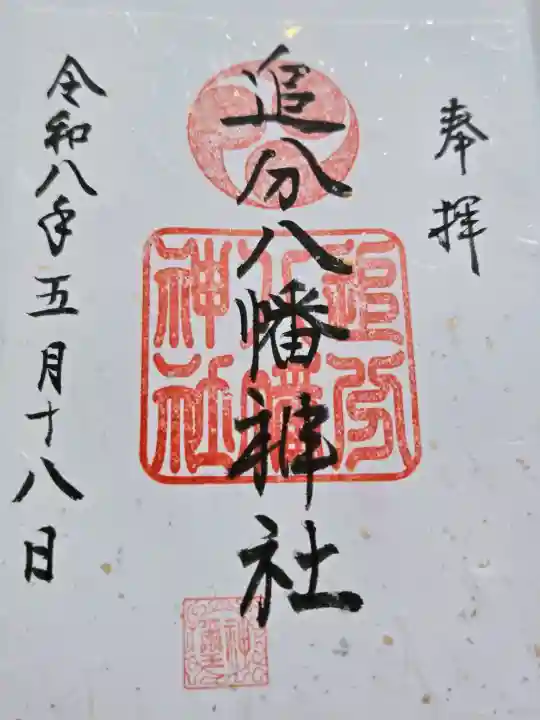 奉拝
追分八幡神社
追分八幡神社
令和八年五月十八日